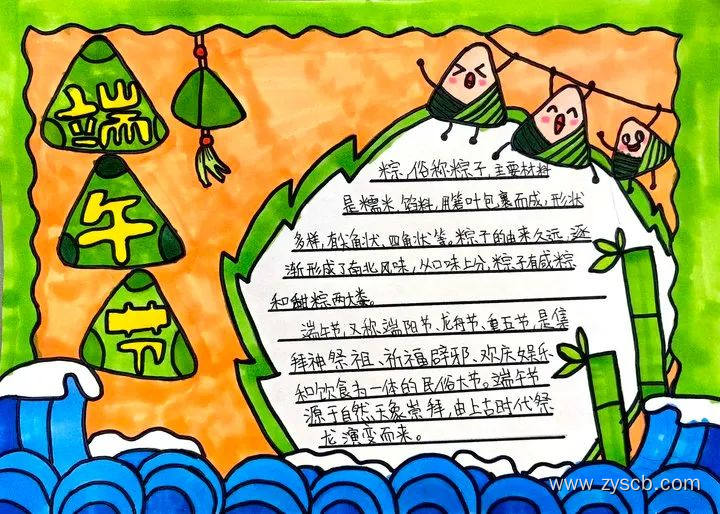 端
午
节
粽,俗称粽子,主要材料
是糯米、馅料,用箬叶包裹而成,形状
多样,有尖角状、四角状等,粽子的由来久远,逐
渐形成了南北风味,从口味上分,粽子有咸粽
和甜粽两大类。
端午节,又称端阳节、龙舟节、重五节,是集
拜神祭祖、祈福辟邪、欢庆娱乐
和饮食为一体的民俗大节。端午节
源于自然天象崇拜,由上古时代祭
龙演变而来。
www.zyscb.com